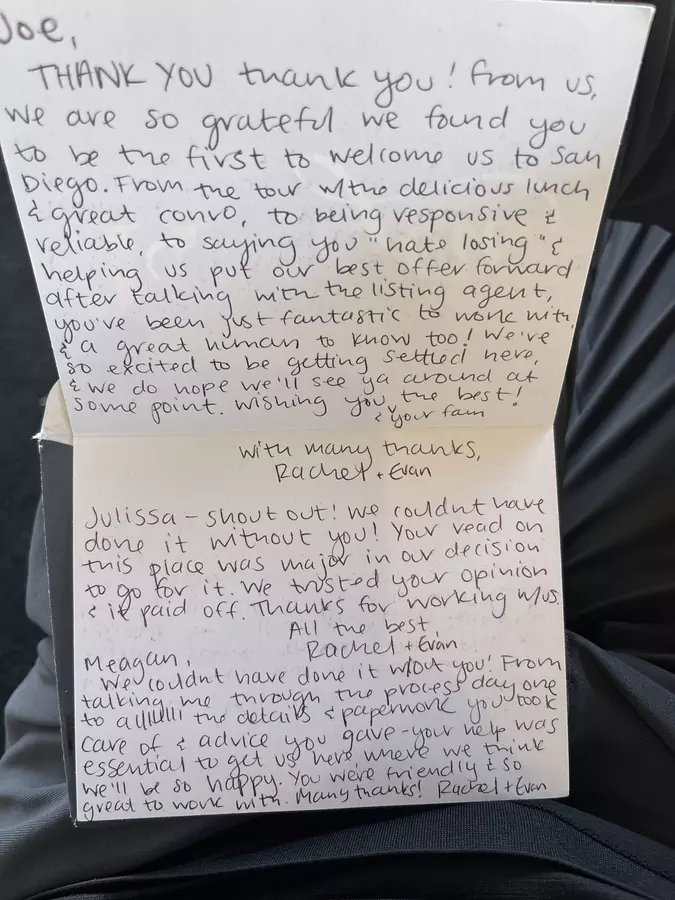 Joe,
THANK YOU thank you! From us,
we are so grateful we found you
to be the first to welcome us to San
Diego. From the tour w/the delicious lunch
& great convo, to being responsive &
reliable to saying you "hate losing" &
helping us put our best offer forward
after talking with the listing agent,
you've been just fantastic to work with,
& a great human to know too! We've
so excited to be getting settled here,
& we do hope we'll see ya around at
some point. Wishing you the best!
& your fam
With many thanks,
Rachel + Evan
Julissa - shout out! We couldnt have
done it without you! Your read on
this place was major in our decision
to go for it. We trusted your opinion
& it paid off. Thanks for working w/us.
All the best,
Rachel + Evan
Meagan,
We couldnt have done it w/out you! From
talking me through the process day one
to allllll the details & paperwork you took
care of & advice you gave - your help was
essential to get us here where we think
we'll be so happy. You were friendly & so
great to work with. Many thanks! Rachel + Evan